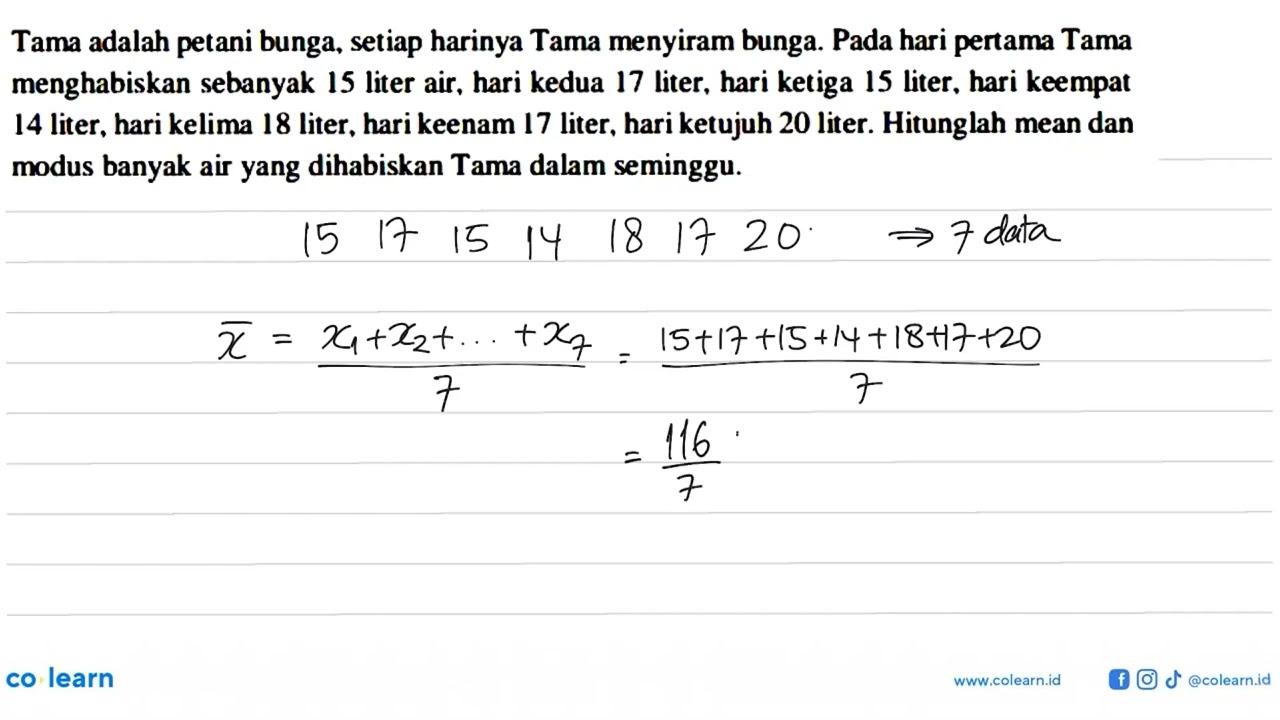 Tama adalah petani bunga, setiap harinya Tama menyiram bunga. Pada hari pertama Tama
menghabiskan sebanyak 15 liter air, hari kedua 17 liter, hari ketiga 15 liter, hari keempat
14 liter, hari kelima 18 liter, hari keenam 17 liter, hari ketujuh 20 liter. Hitunglah mean dan
modus banyak air yang dihabiskan Tama dalam seminggu.
15 17 15 14 18 17 20 ⇒ 7 data
x̄ = (x₁+x₂+...+x₇)/7 = (15+17+15+14+18+17+20)/7
= 116/7
co learn
www.colearn.id @colearn.id